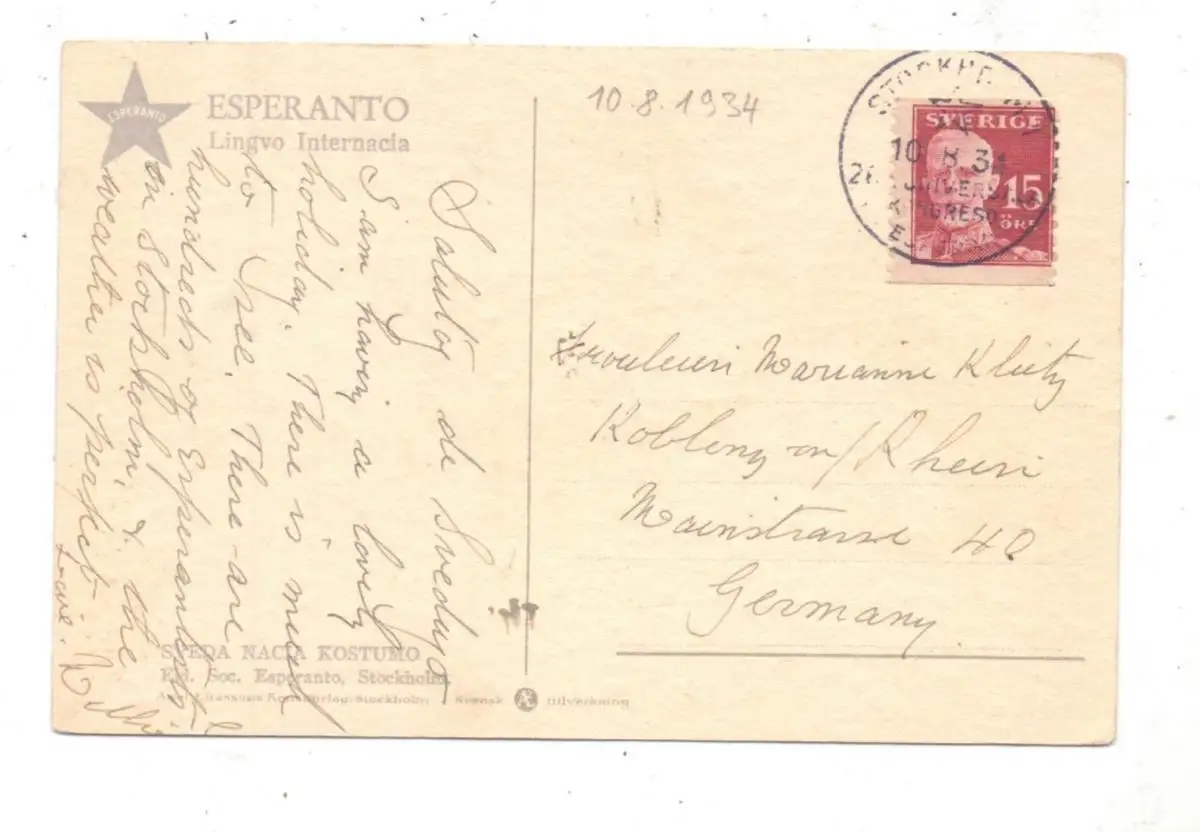 ESPERANTO
ESPERANTO
Lingvo Internacia
10.8.1934
SVERIGE
15
ÖRE
10 8 34
UNIVERSALA
KONGRESO
Salutoj de Svedujo
I am having a lovely
holiday. There is much
to see. There are
hundreds of Esperantists
in Stockholm, & the
weather is perfect.
Love.
Fräulein Marianne
Koblenz am/Rhein
Mainstrasse 40
Germany.
SVEDA NACIA KOSTUMO
Eld. Soc. Esperanto, Stockholm.
Axel Eliassons Konstförlag, Stockholm Svensk AE tillverkning